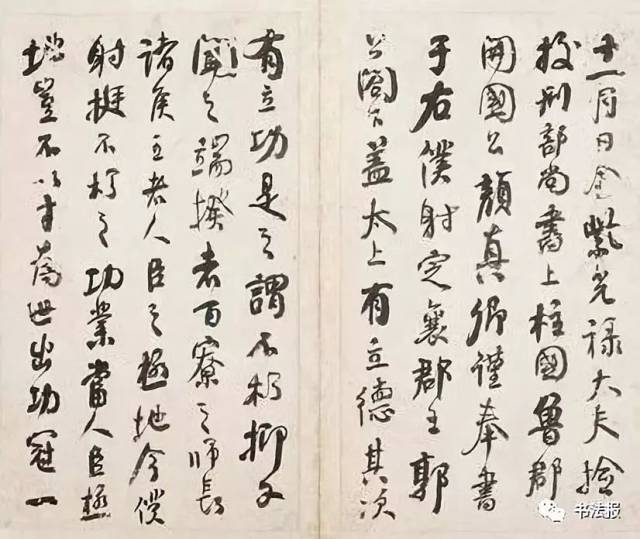 十一月日金紫光禄大夫捡
挍刑部尚書上柱國魯郡
開國公顏真卿謹奉書
于右僕射定襄郡王郭
公閤下蓋太上有立德其次
有立功是之謂不朽抑又
聞之端揆者百寮之師長
諸侯王者人臣之極地今僕
射挺不朽之功業當人臣極
地豈不以才為世出功冠一
书法报